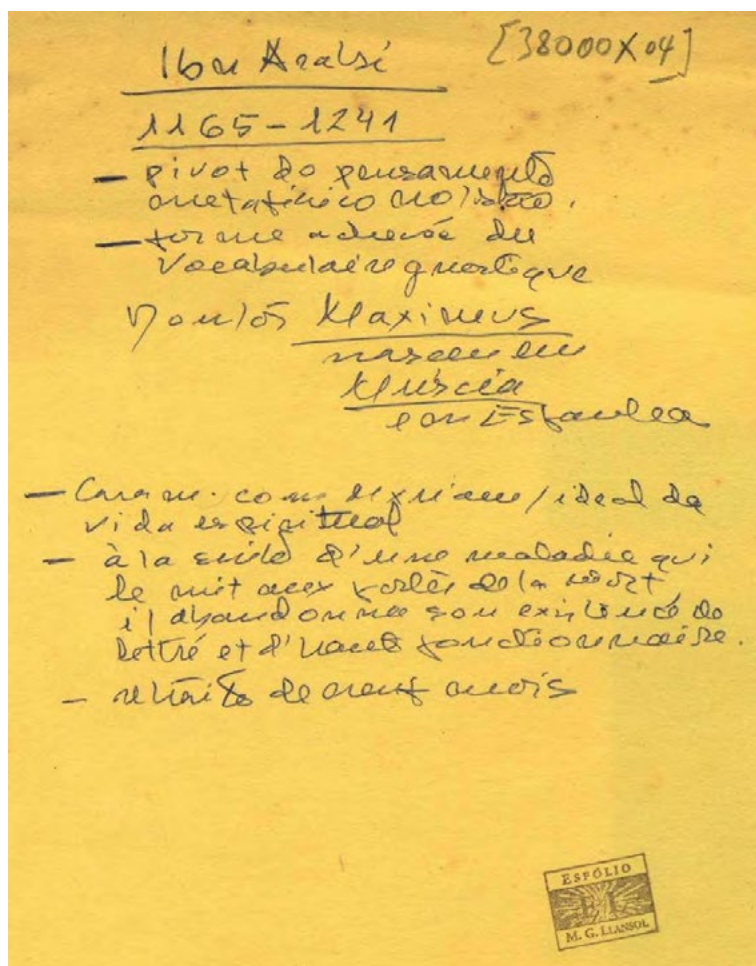 Ibn Arabi
[38000X04]
1165-1241
- pivot do pensamento
metafísico no Islão.
- forme achevée du
vocabulaire gnostique
Doutor Maximus
nasceu em
Múrcia
em Espanha
- Casa m. com Maryam / ideal da
vida espiritual
- à la suite d'une maladie qui
le mit aux portes de la mort,
il abandonna son existence de
lettré et d'haut fonctionnaire.
- retraite de neuf mois
ESPÓLIO
M. G. LLANSOL